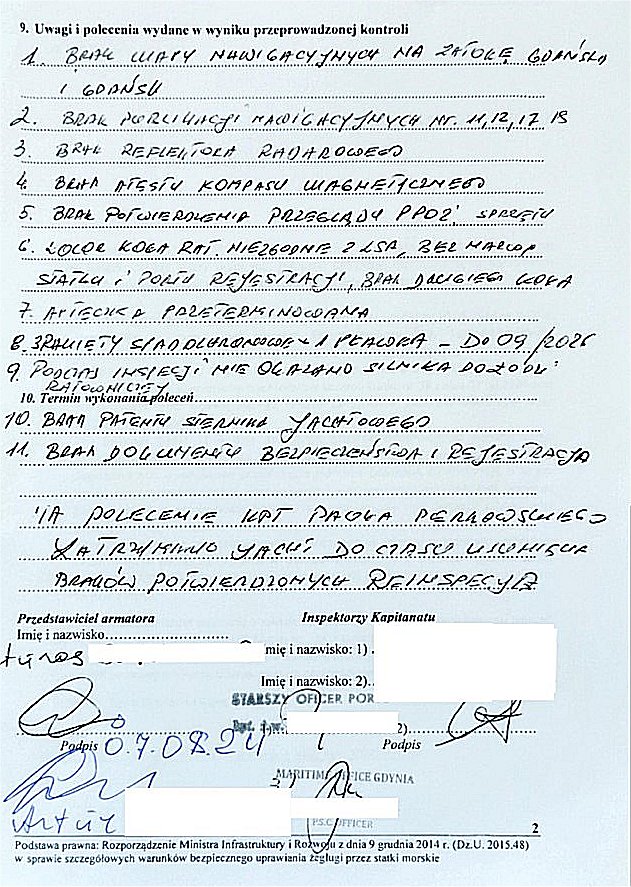 9. Uwagi i polecenia wydane w wyniku przeprowadzonej kontroli
1. BRAK MAPY NAWIGACYJNYCH NA ZATOKĘ GDAŃSKĄ
I GDAŃSK
2. BRAK PUBLIKACJI NAWIGACYJNYCH NR. 11, 12, 17 19
3. BRAK REFLEKTORA RADAROWEGO
4. BRAK ATESTU KOMPASU MAGNETYCZNEGO
5. BRAK POTWIERDZENIA PRZEGLĄDU PPOŻ. SPRZĘTU
6. KOLOR KOŁA RAT. NIEZGODNE Z LSA, BEZ
STATKU I PORTU REJESTRACJI, BRAK DRUGIEGO KOŁA
7. APTECZKA PRZETERMINOWANA
8. 3 RAKIETY SPADOCHRONOWE + 1 PŁAWKA - DO 09/2026
9. PODCZAS INSPECJI NIE OKAZANO SILNIKA DO ŁODZI
RATOWNICZEJ
10. Termin wykonania poleceń
10. BRAK PATENTU STERNIKA YACHTOWEGO
11. BRAK DOKUMENTU BEZPIECZEŃSTWA I REJESTRACJA
NA POLECENIE KPT PAWŁA
ZATRZYMANO YACHT DO CZASU USUNIĘCIA
BRAKÓW POTWIERDZONYCH REINSPECJĄ
Przedstawiciel armatora Inspektorzy Kapitanatu
Imię i nazwisko
mię i nazwisko: 1)
Imię i nazwisko: 2)
STARSZY OFICER POR
2)
Podpis 07.08.24 Podpis
MARITIME OFFICE GDYNIA
P.S.C. OFFICER
Artur
2
Podstawa prawna: Rozporządzenie Ministra Infrastruktury i Rozwoju z dnia 9 grudnia 2014 r. (Dz.U. 2015.48)
w sprawie szczegółowych warunków bezpiecznego uprawiania żeglugi przez statki morskie